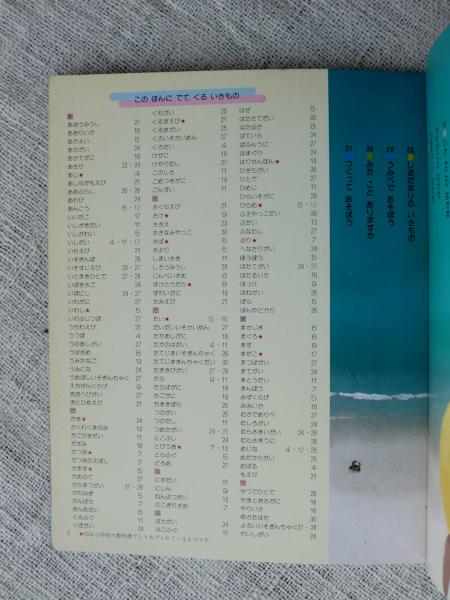 この ほんに でて くる いきもの
あ
あおうみうし 27
あおりいか 16
あかえい 5
あかがい 24
あかてがに 18
あさり 22・24
あじ★ 4
あしながもえび 21
あめふらし 26・28
あわび 24
あんこう 6・12
いいだこ 17
いしがきだい 11
いしがれい 5
いしだい 4・11・12
いせえび 21
いそぎんぽ 26
いそすじえび 20・27
いとまきひとで 27・28
いぼきさご 24
いぼにし 24・27
いわがに 27
いわし★ 5
いわふじつぼ 27
うちわえび 21
うつぼ 4
うのあしがい 27
うまづらはぎ 8
うみたなご 13
うみにな 24
うめぼしいそぎんちゃく 27
えちぜんくらげ 9
おおへびがい 27
おとひめえび 21
か
かき★ 24
かくれくまのみ 13
かごかきだい 11
がざみ 18
かつお★ 7
かつおのえぼし 7
かます★ 5
かめのて 27
からまつがい 27・28
かわはぎ 5
かんぱち 7
きんめだい 6
くろふぐ 11
くぼがい 24
くもがい 25
くるまえび★ 21
くるまがい 25
くろいそかいめん 27
くろだい 4
けがに 19
けやりむし 27
このしろ 11
こめつきがに 19
こんぺい
さ
さくらえび 21
さけ★ 9
さざえ 23
さざなみやっこ 30
さば★ 5
さより 5
しまいさき 11
しろうみうし 26
じんべいざめ 6
すけとうだら★ 8
ずわいがに 19
せみえび 21
た
たい★ 5・10
だいだいいそかいめん 27
たかあしがに 18
たかのはだい 4・11
たてじまいそぎんちゃく 26
たてじまきんちゃくだい 30
たまきびがい 27・29
たら 9・11
たらばがに 19
ちごがに 19
ちょうちょううお
つのがい 25
つのだし 11
つめたがい 24・25
とこぶし 24
とびうお★ 7・13
とらふぐ 5
どろめ 27
な
にきだい 11
にしん 9
ねんぶつだい 13
のこぎりざめ 7
は
ばかがい 24
はこふぐ 11
はぜ 5
はたたてだい 30
はたはた 8
ばていら 24
ばふんうに 27
はまぐり 24
はりせんぼん★ 13
ひざらがい 26
ひとで 27
ひめじ 11
ひらいそがに 26
ひらめ★ 5・13
ふえやっこだい 30
ふだい 13
ふなむし 27
ぶり★ 7
へなたりがい 24
ほうぼう 5
ほたてがい 24・25
ほたるいか 16
ほっけ 9
ほねがい 25
ほら 5
ほんやどかり 26
ま
まかじき 6
まぐろ★ 6
ます 8
まだこ★ 17
まつばがい 27
まてがい 24
まとうだい 11
まんぼう 7
みずくらげ 5
みみいか 16
むかでめりべ 27
むしろがい 24
むらさきいがい 24・26
むらさきうに 26
めじな 4・12・26
めだからがい 25
めばる 4
もえび 21
や
やつでひとで 28
やまとおさがに 18
やりいか 16
ゆかたはだ 30
よろいいそぎんちゃく 27・28
れいしがい 24
2 ★印は小学校の教科書でとりあげられているものです。
26 しおだまりの いきもの
28 うみべで あそぼう
30 みた こと ありますか
31 つくって あそぼう